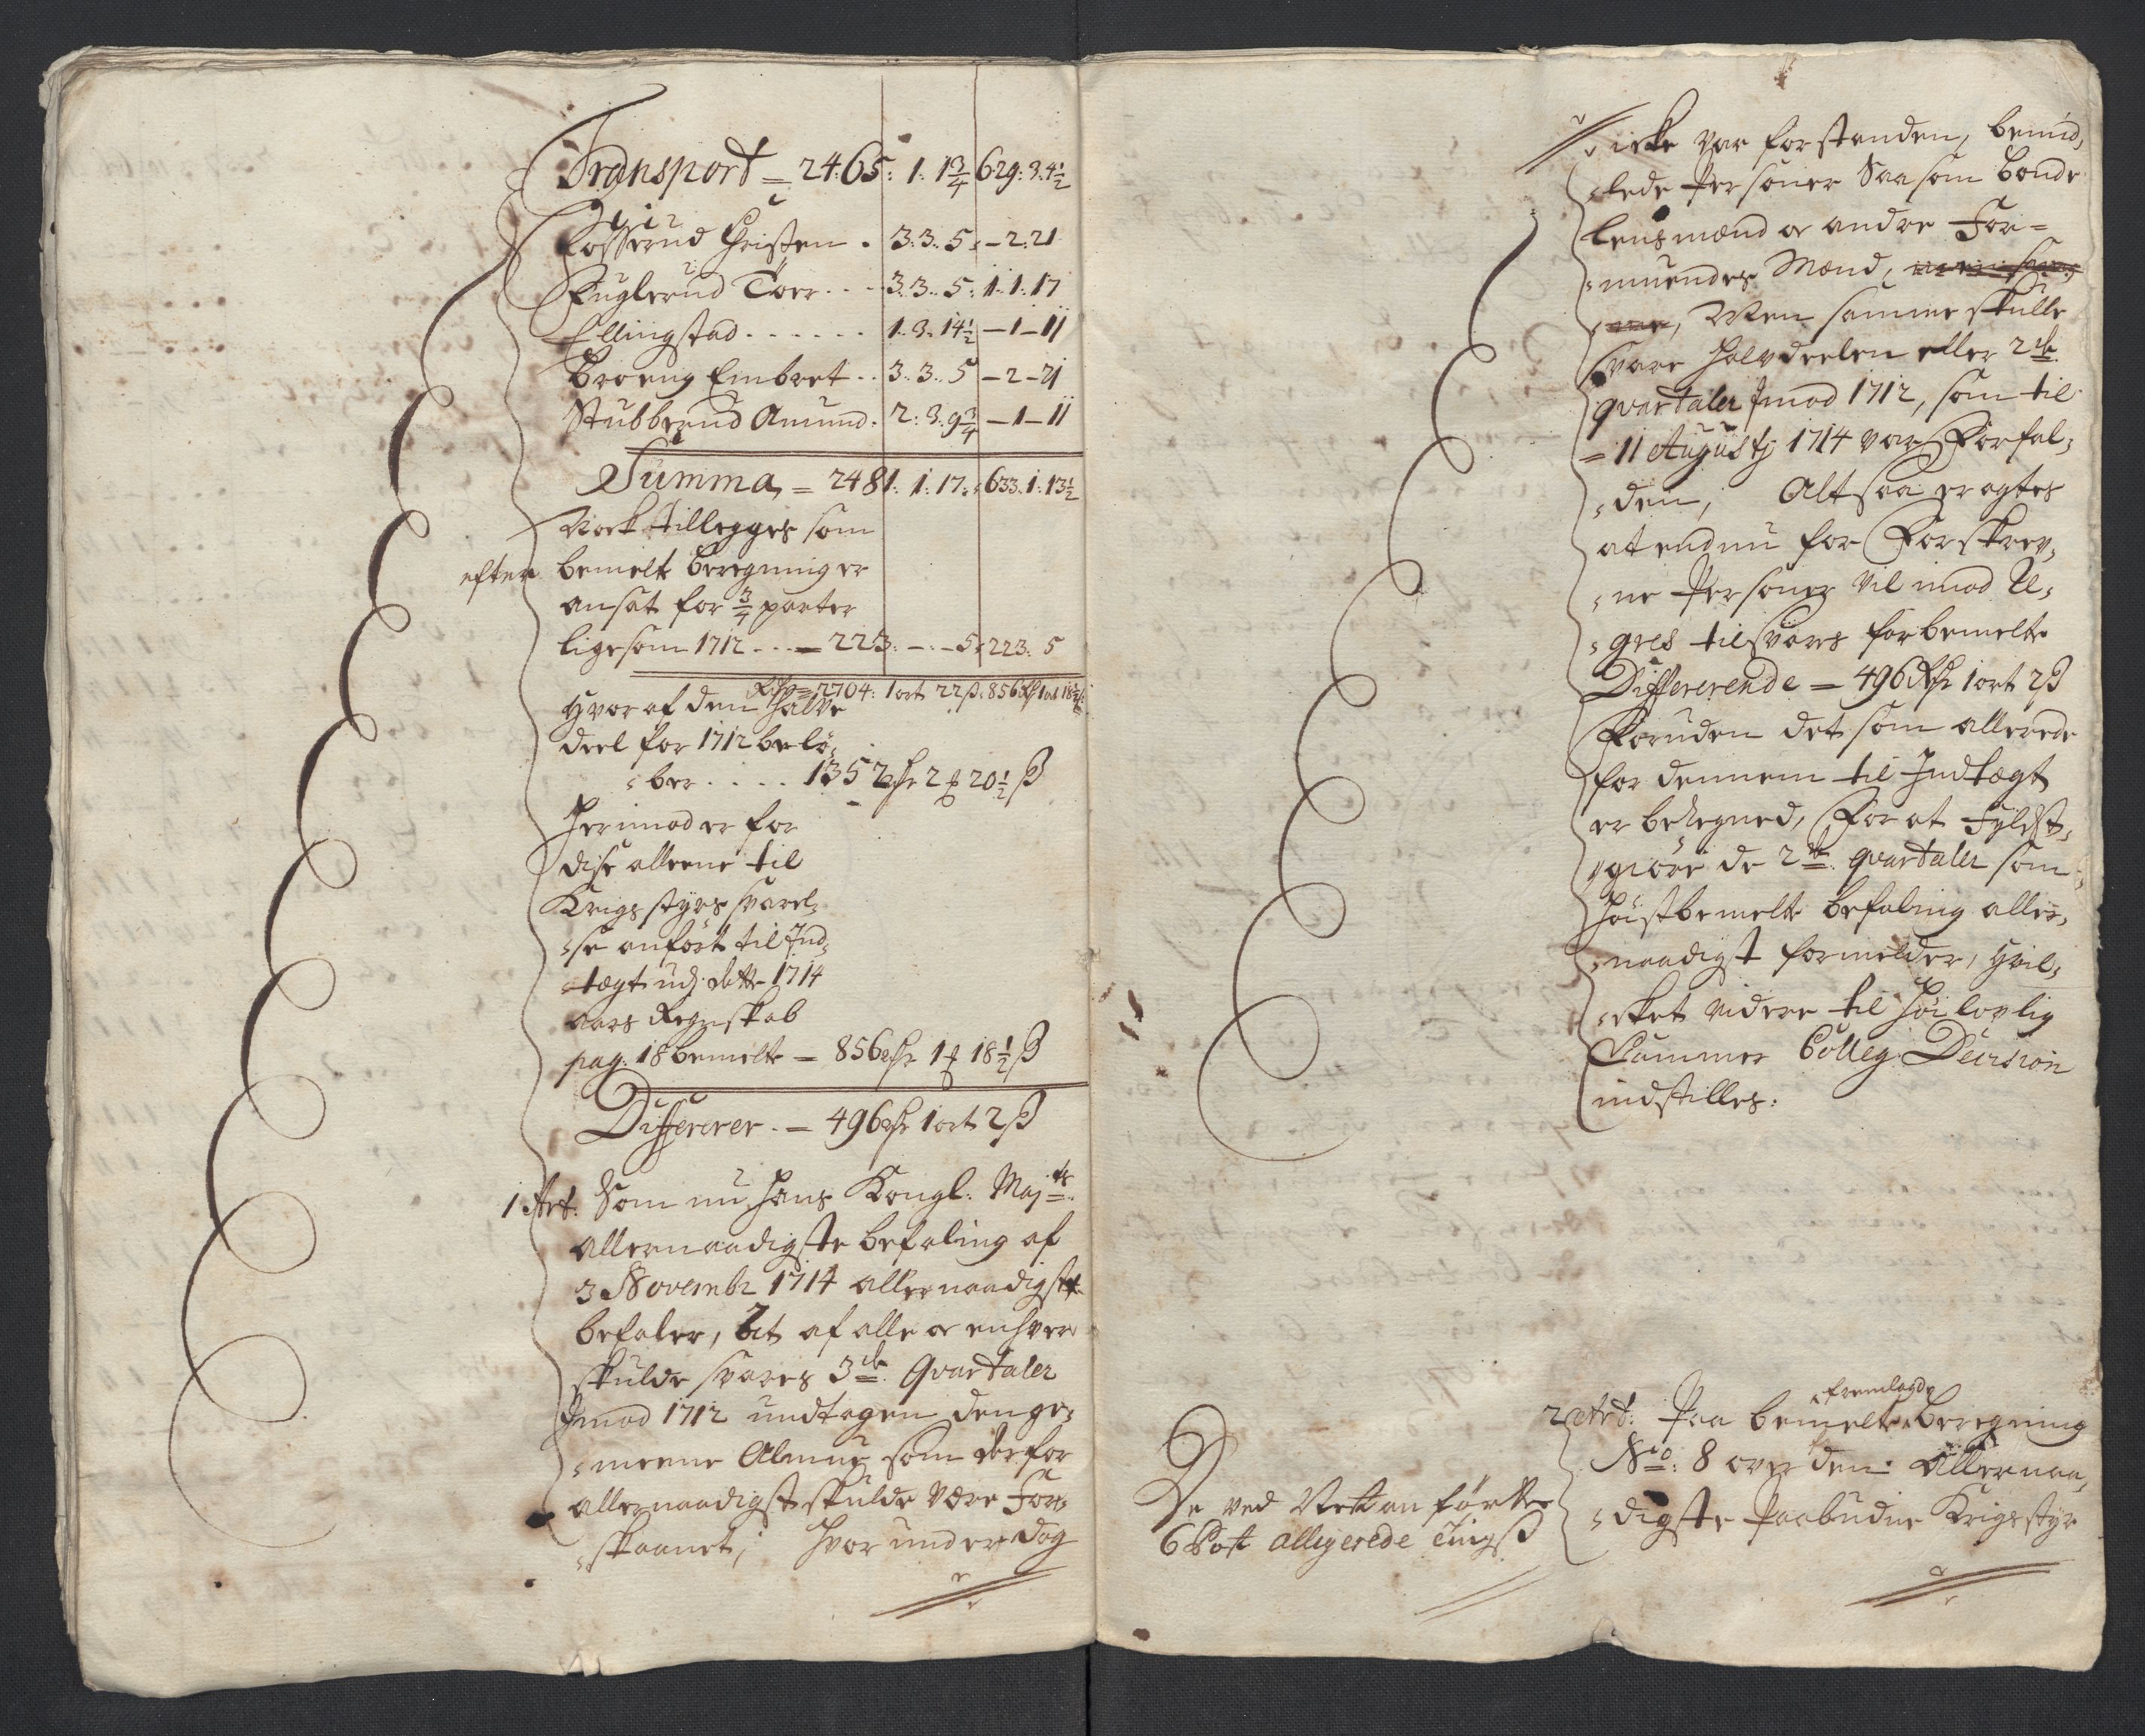 Transport = 2465: 1. 1 3/4 629: 3. 4 1/2
Fosserud Christen . 3: 3. 5: – 2: 21
Fuglerud Toer . . . 3: 3. 5: 1: 1: 17
Ellingstad . . . . . . 1. 3. 14 1/2 – 1 – 11
Broeng Embret . . 3. 3. 5 – 2 – 21
Stubberud Amund . 2: 3. 9 3/4 – 1 – 11
Summa, = 2481: 1: 17: 633. 1: 13 1/2
Noch tillegges som
efter bemelte beregning er
ansat for 3/4 parter
ligesom 1712 . . . = 223: – : – 5: 223: 5
Rdr = 2704: 1 ort 22 β: 856 Rdr 1 ort 18 1/2 β
Hvor af den halve
deel for 1712 belø-
ber . . . . 1352 Rdr 2 ort 20 1/2 β
Herimod er for
dise alleene til
Krigs styrs svarel-
se anført til Ind-
tægt udj dette 1714
aars Regnskab
pag: 18 bemelte = 856 Rdr 1 ort 18 1/2 β
Differerer . = 496 Rdr 1 ort 2 β
1 Art. Som nu hans Kongl: Maj:ts
allernaadigste befaling af
3 Novembr 1714 allernaadigst
befaler, at af alle og enhver
skulde svares 3de Qvartaler
Jmod 1712 undtagen den ge-
meene Almue som derfor
allernaadigst skulde være For-
skaanet, hvor under dog
icke var forstanden, bemid-
lede Personer Saasom bonde
lensmænd og andre For-
muendes Mænd,
Men samme skulle
svare halvdeelen eller 2de
qvartaler Jmod 1712, som til
11 Augustj 1714 var Forfal-
den, Altsaa eragtes
at endnu for Forskrev-
ne Personer vil imod U-
gres tilsvares forbemelte
Differerende = 496 Rdr 1 ort 2 β
Foruden det som allerede
for dennem til Indtægt
er beregned, For at Fyldest-
giøre de 2de qvartaler som
høistbemelte befaling aller-
naadigst formelder, hvil-
cket videre til høi lovlig
Cammer Colleg: Decision
indstilles:
fremlagde
2 Art: Paa bemelte beregning
No: 8 over den Allernaa-
digste Paabudne Krigsstyr
De ved Nett anførtte
6 Post allegerede tings